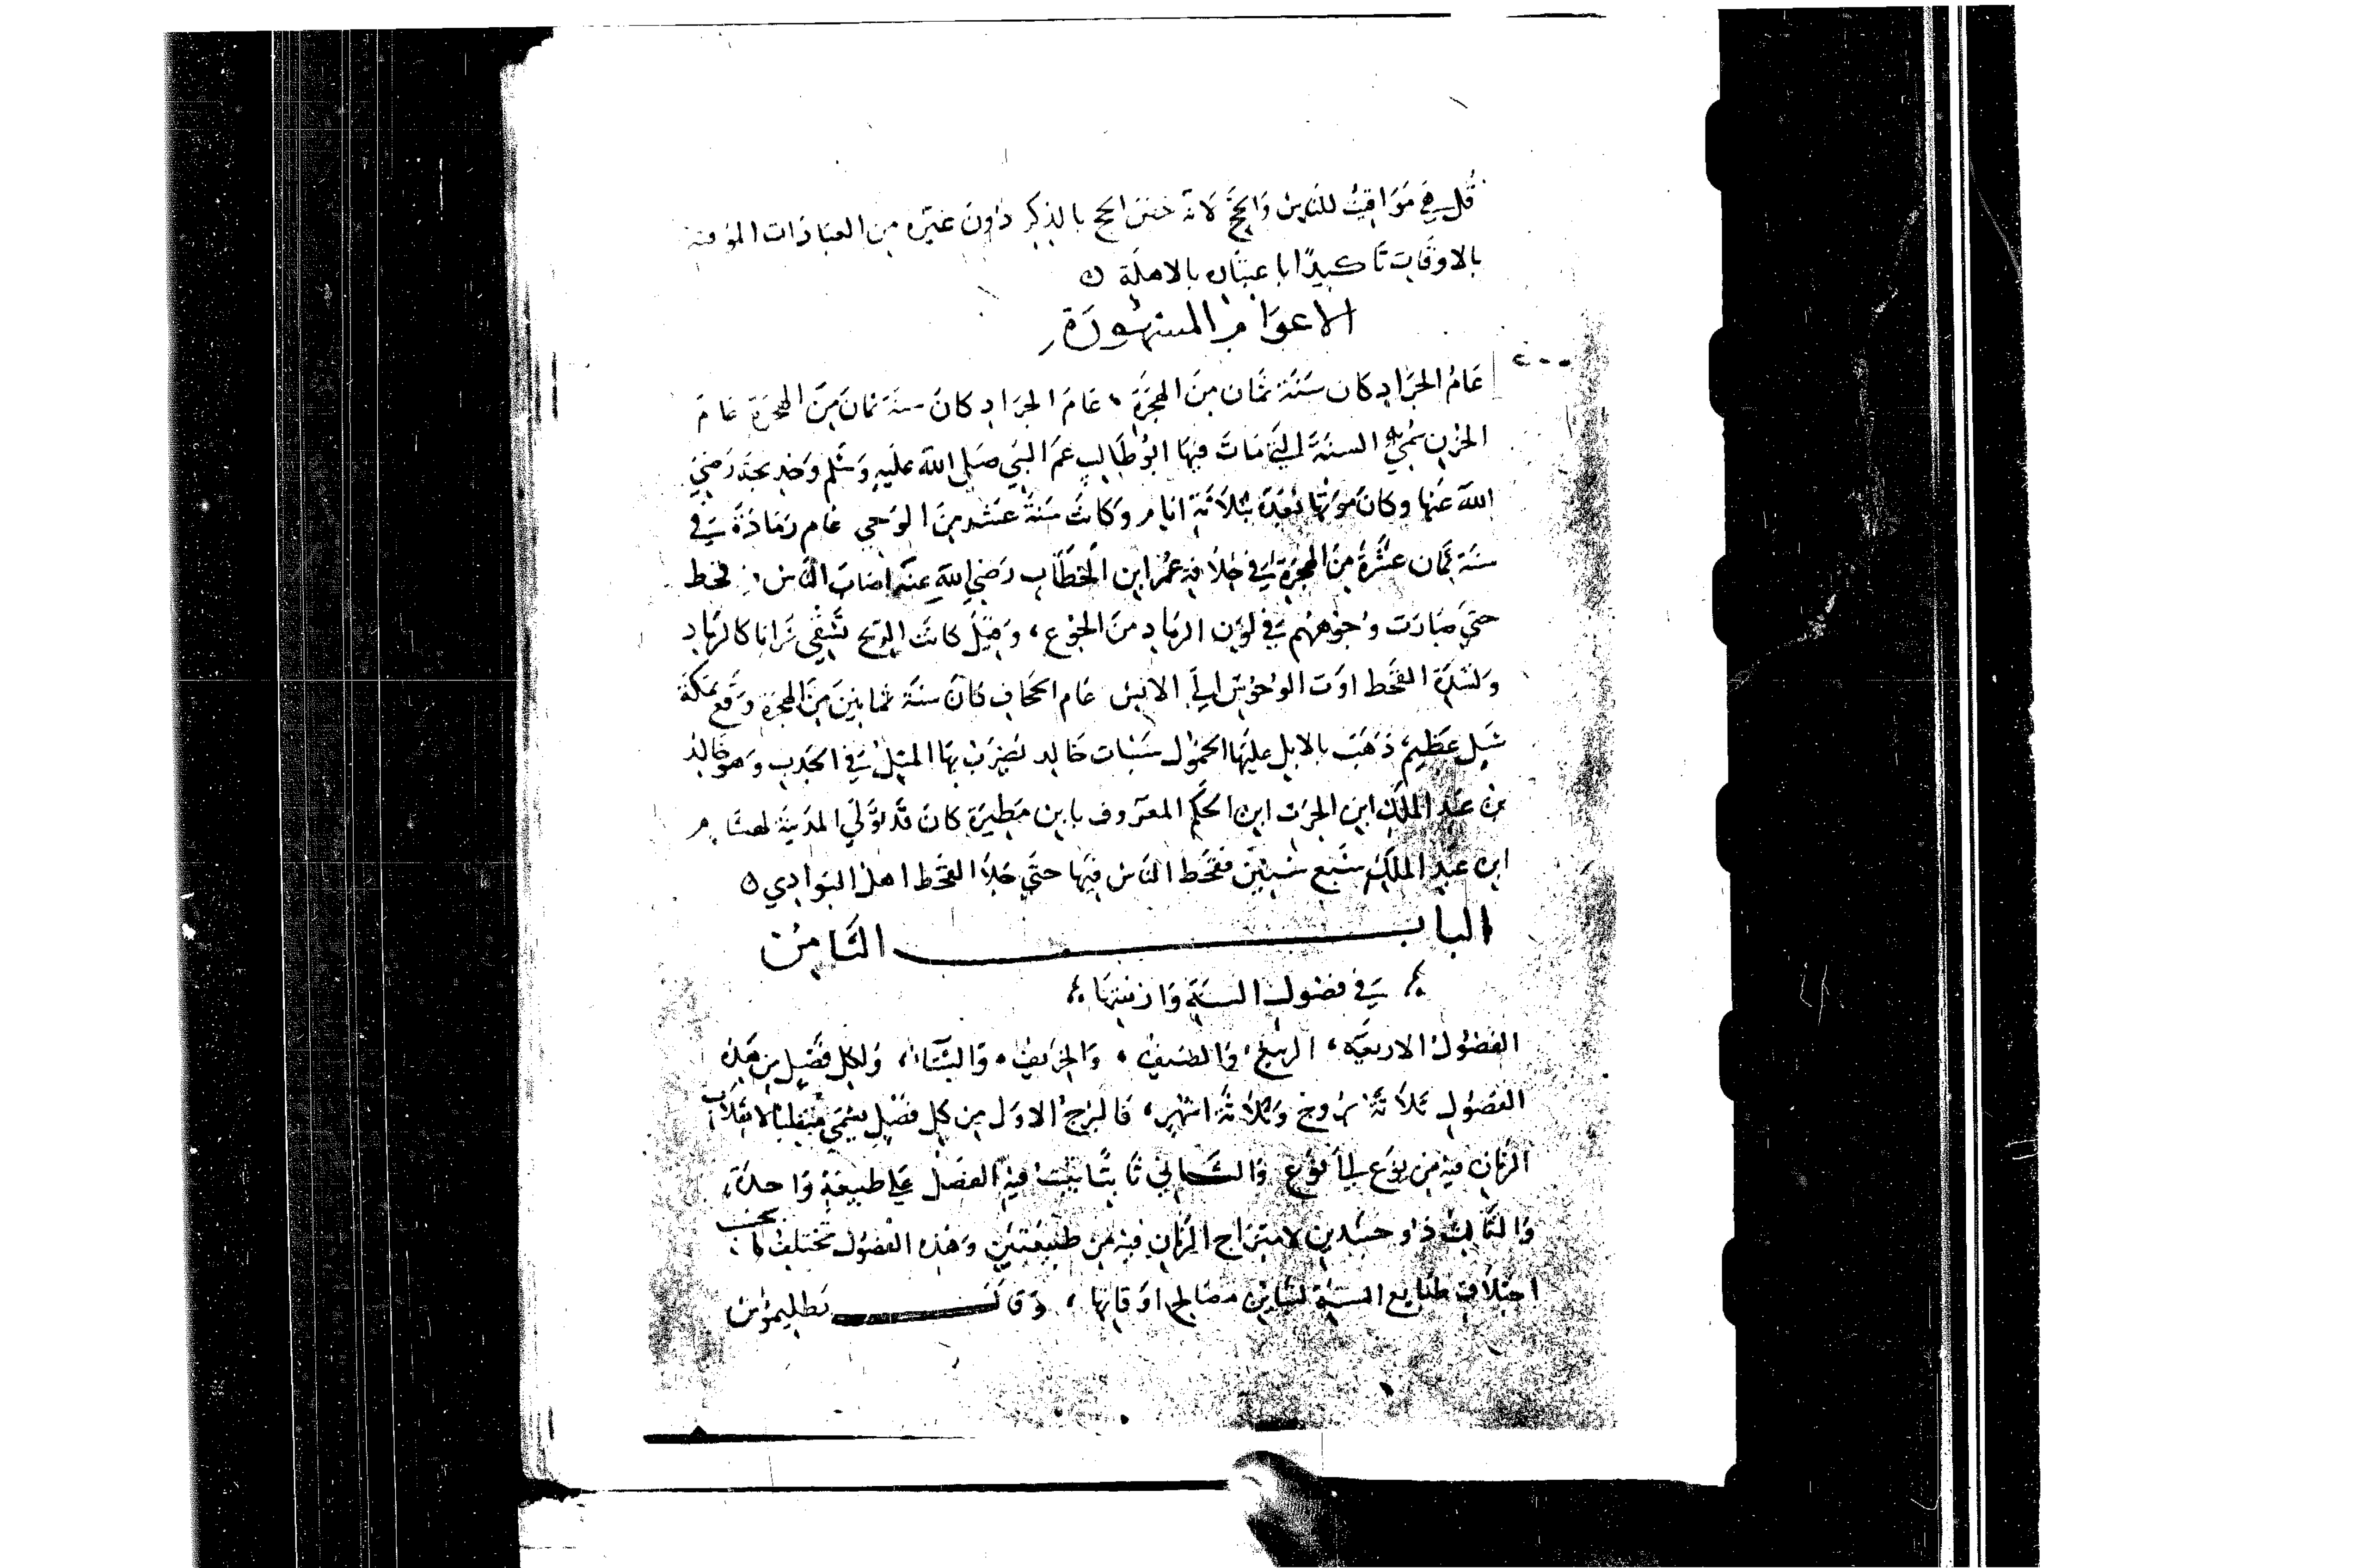 قُل هِيَ مَوَاقيتُ للنَاسِ وَالحَجِّ لانه خص الحج بالذِكر دُونَ غيَره من العبَادَات المؤقتة
بالاوقَات تَاكيدًا باعتبَار بالاهلَة
الاعوَام المشهُورَة
عَامُ الجَرَادِ كان سَنَة ثمَان مِنَ الهجرَةِ، عَامَ الجرَادِ كانَ سنَة ثمانَ مِنَ الهجرَة عَامَ
الحزنِ سُمّي به السنَة التي مَاتَ فيهَا ابُو طَالبٍ عَم النبَي صَلى الله عليَهِ وَسَلم وَخديجَة رَضيَ
اللهَ عَنها وكانَ مَوتهَا بَعْدَه بثلاثَة ايَام وَكانَتْ سَنَة عَشر مِنَ الوَحي عَام رَمَادَة في
سنَة ثمَان عَشْرَة مِنَ الهجرَة في خلافَة عُمَر ابن الخطَّاب رَضيَ اللهَ عنَه اصَابَ النَاس قحط
حتى صَارَت وُجُوههُم في لوَن الرمَادِ منَ الجوُع، وَقيْلَ كانَت الريح تَسْفي تُرَابا كالرمَادِ
وَلشدَة القحَط اوَت الوُحوُش الى الانِس عَام الجحَاف كَانَ سنَة ثمانينَ مِنَ الهجرَة وَقَع بمَكَة
سَيل عَظِيم، ذَهَبَ بالابِل عليَهَا الحمُول سَنوَات خَالد يَضربُ بهَا المثل في الجدَب وَهوَ خَالدُ
بن عَبد الملَكِ ابن الحَرث ابن الحَكم المعرَوف بابن مَطيرَة كانَ قَد تَولّى المدَينَة لهشَام
ابن عَبدِ الملَك سَبع سنينَ فقحَط النَاسُ فيهَا حتَّى جَلا القحَط اهلَ البَوادي
البابــــ الثَامِن
في فصُول السَنَة وَازمنتهَا
الفصُول الاربعَة، الربيعُ وَالصَيفُ، وَالخرَيفُ، وَالشتَاءُ، وَلكل فَصْل مِن هَذه
الفصُول ثلاثَة برُوج وَثلاثَة اشهُرٍ، فَالبرُجُ الاوَل مِن كل فصْلٍ يسمّى منقلبًا لانقلاب
الزمَانِ فيهِ مِن نوَع الى نوُع وَالثــاني ثَابتًا يثبُتُ فيهِ الفصَل عَلى طبيعَةٍ وَاحدَة،
وَالثَالث ذُو جسَدين لامتزَاج الزمَان فيهِ مِن طَبيعَتين وَهَذه الفصُول تختلف بحسب
اختلاف طبَايع السَنَة لتبَاين مصَالح اوقَاتها، وَقالـــ بَطليمُوس